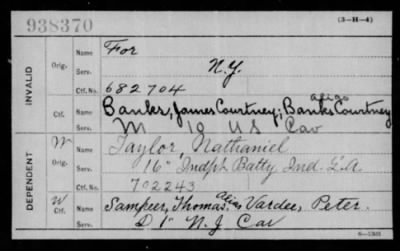 938370 (3-H-4)
INVALID
Orig. Name For
Serv. N.Y.
Ctf. No. 682704
Ctf. Name Banker, James Courtney; alias Banks Courtney
Serv. M 10 US Cav
DEPENDENT
W Orig. Name Taylor Nathaniel
Serv. 16" Indpt Batty Ind. L.A.
Ctf. No. 702243
W Ctf. Name Sampeer, Thomas, alias Vardee, Peter.
Serv. D 1" N.J. Cav